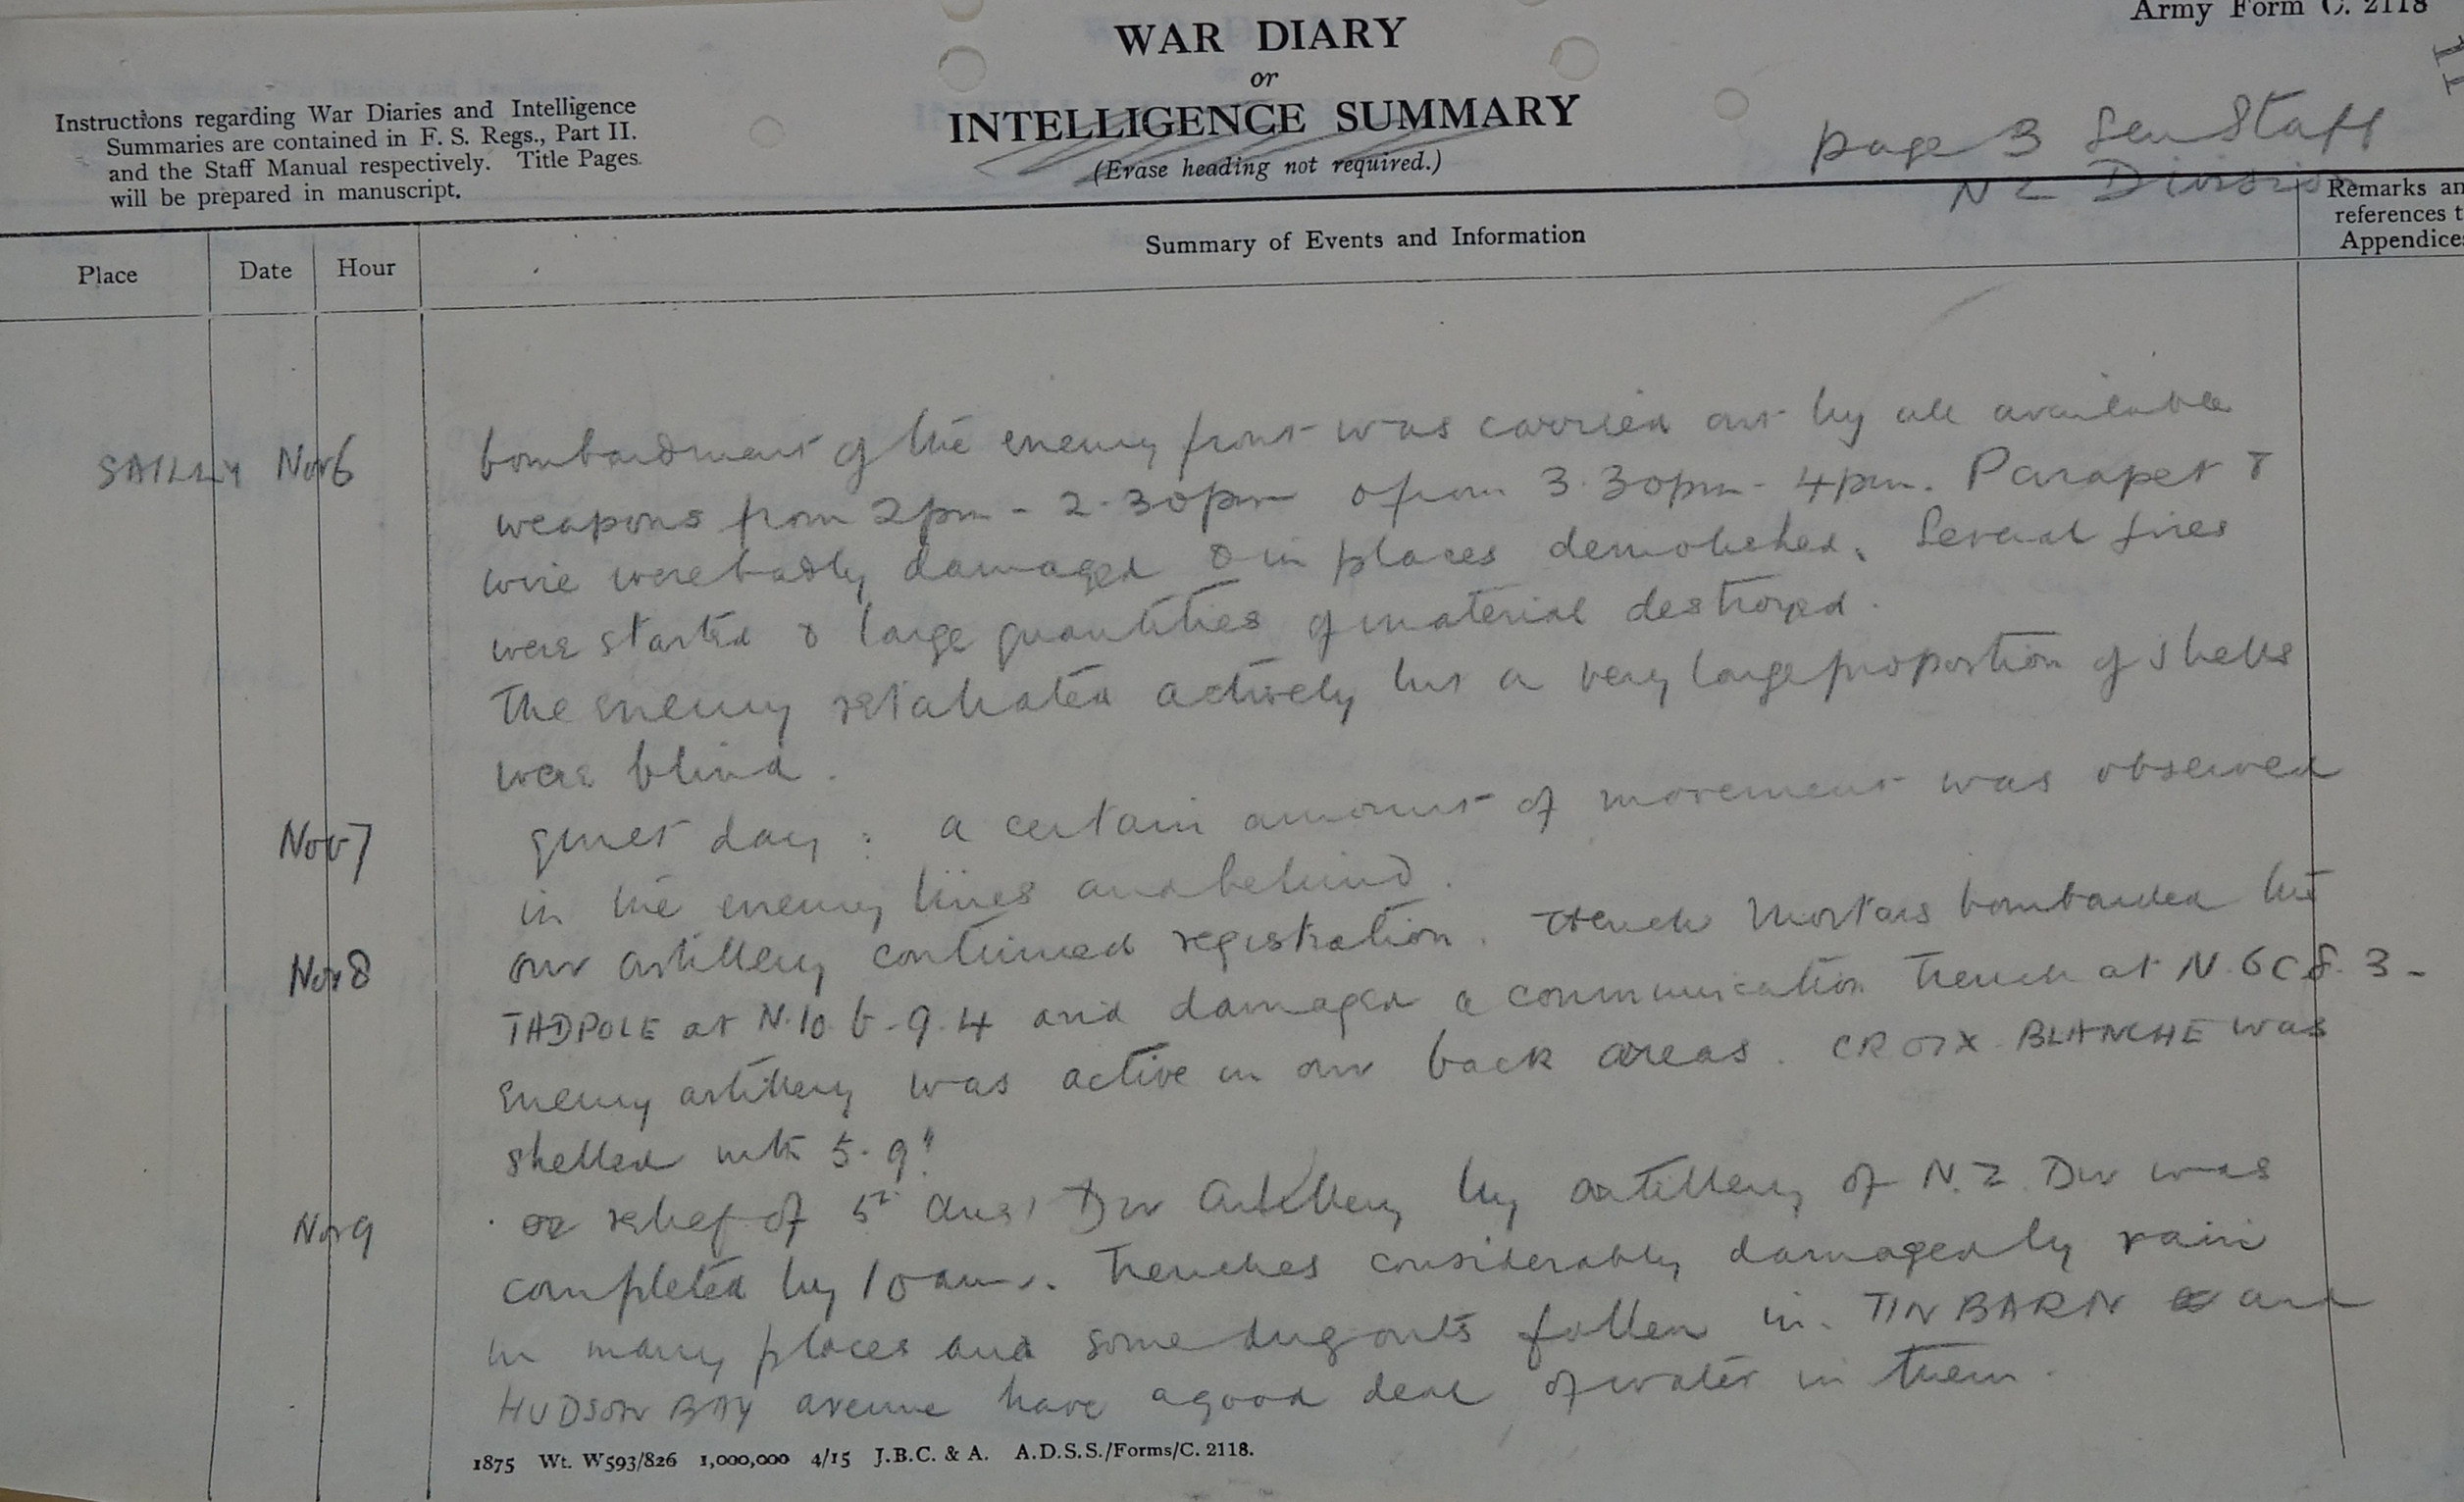 Army Form C. 2118
WAR DIARY
or
INTELLIGENCE SUMMARY
(Erase heading not required.)
Instructions regarding War Diaries and Intelligence
Summaries are contained in F. S. Regs., Part II.
and the Staff Manual respectively. Title Pages
will be prepared in manuscript.
page 3 Gen Staff
NZ Division
Place Date Hour
Summary of Events and Information
Remarks an
references t
Appendices
SAILLY Nov 6 bombardment of the enemy front was carried out by all available
weapons from 2pm - 2.30pm & from 3.30pm - 4pm. Parapet &
wire were badly damaged & in places demolished. Several fires
were started & large quantities of material destroyed.
The enemy retaliated actively but a very large proportion of shells
were blind.
Nov 7 quiet day : a certain amount of movement was observed
in the enemy lines and behind.
Nov 8 our artillery continued registration. Trench Mortars bombarded the
TADPOLE at N.10.b.9.4 and damaged a communication trench at N.6c8.3-
Enemy artillery was active in our back areas. CROIX BLANCHE was
shelled with 5.9"
Nov 9 relief of 5th Aust Div Artillery by artillery of N.Z. Div was
completed by 10am. Trenches considerably damaged by rain
in many places and some dug outs fallen in. TIN BARN and
HUDSON BAY avenue have a good deal of water in them.
1875 Wt. W593/826 1,000,000 4/15 J.B.C. & A. A.D.S.S./Forms/C. 2118.